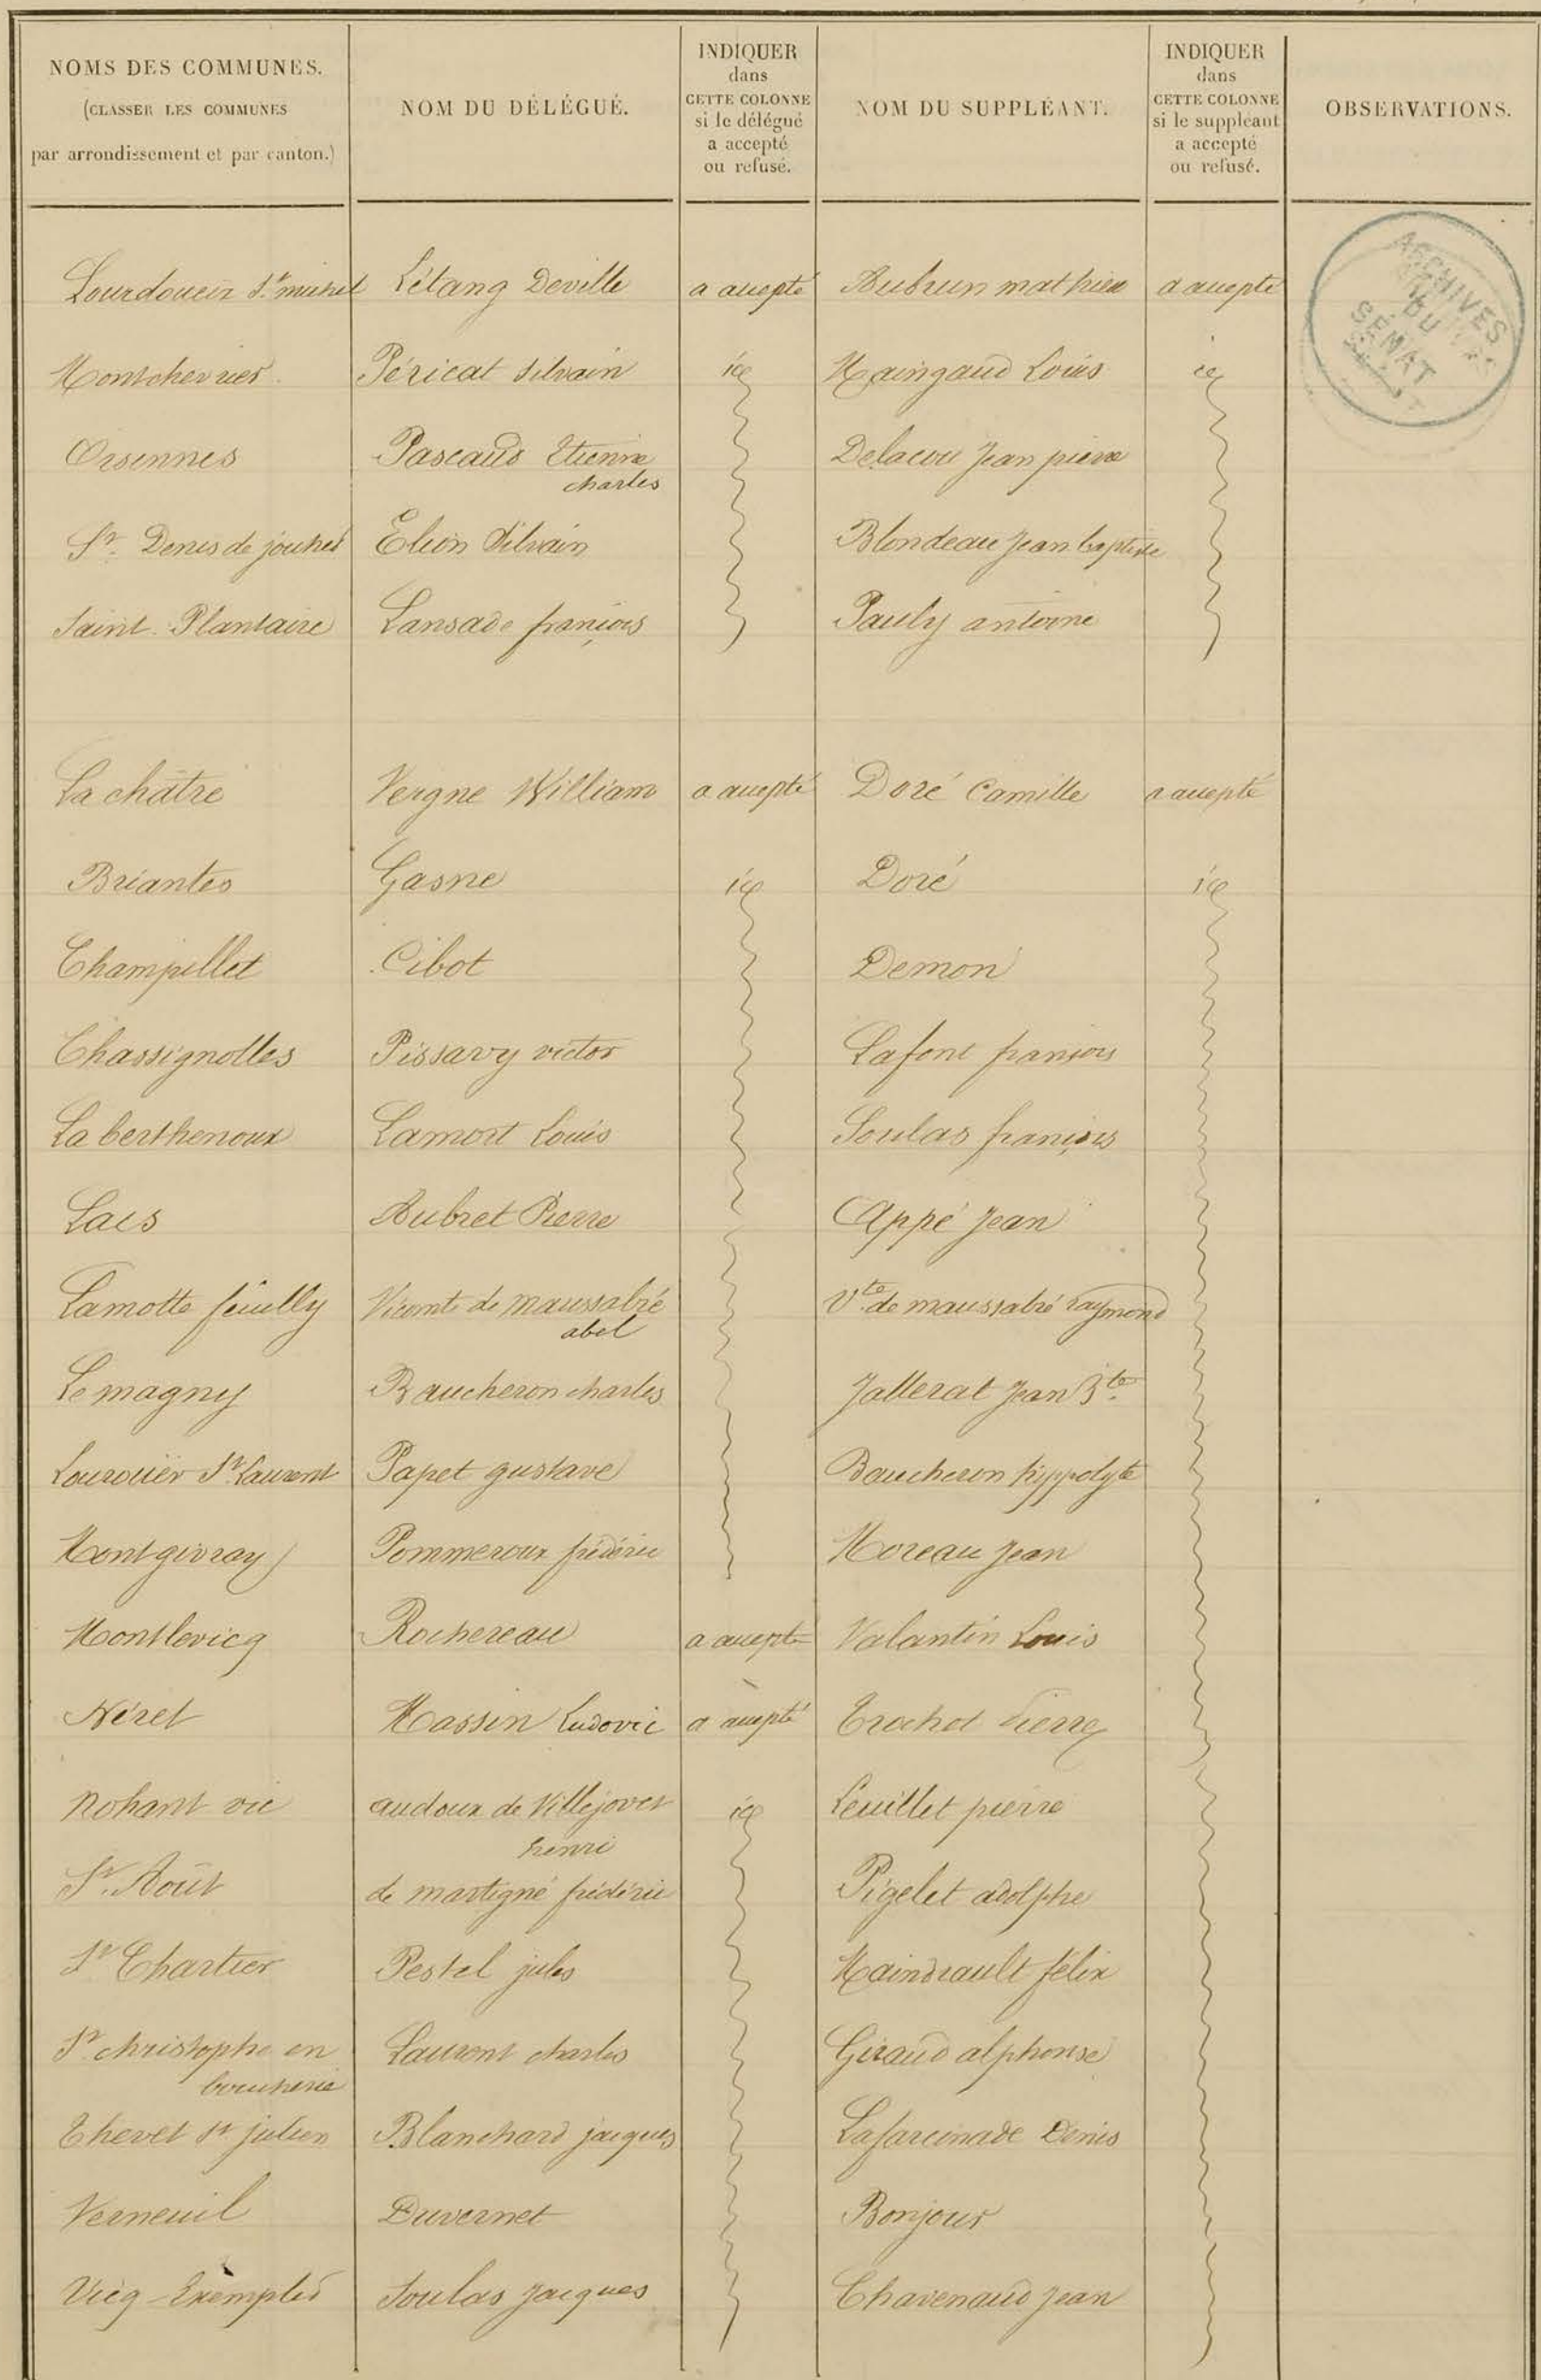 NOMS DES COMMUNES.
(CLASSER LES COMMUNES
par arrondissement et par canton.)
NOM DU DÉLÉGUÉ.
INDIQUER
dans
CETTE COLONNE
si le délégué
a accepté
ou refusé.
NOM DU SUPPLÉANT.
INDIQUER
dans
CETTE COLONNE
si le suppléant
a accepté
ou refusé.
OBSERVATIONS.
ARCHIVES
DU
SÉNAT
Lourdoueix St. michel Létang Deville a accepté Aubrun mathieu a accepté
Montchevrier Péricat Silvain id Maingaud Louis id
Orsennes Pascaud Etienne Delacou Jean pierre
charles
St. Denis de jouhet Elion Silvain Blondeau Jean baptiste
Saint Plantaire Lansade françois Pauly antoine
La châtre Vergne William a accepté Doré Camille a accepté
Briantes Gasne id Doré id
Champillet Cibot Demon
Chassignolles Pissavy victor Lafont françois
La berthenoux Lamort Louis Soulas françois
Lacs Aubret Pierre Appé Jean
Lamotte feuilly Vicomte de maussabré Vte. de maussabré raymond
abel
Le magny Baucheron charles Jallerat Jean Bte.
Lourouër St Laurent Papet gustave Baucheron hippolyte
Montgivray Pommeroux frédéric Moreau Jean
Montlevicq Rochereau a accepté Valantin Louis
Néret Massin Ludovic a accepté Trochet Pierre
Nohant vic audoux de Villejovet id Leuillet pierre
henri
St. Août de martigné frédéric Pigelet adolphe
St Chartier Pestel jules Maindrault félix
St christophe en Laurent charles Giraud alphonse
boucherie
Thevet St julien Blanchard jacques Lafarcinade Denis
Verneuil Duvernet Bonjour
Vicq Exemplet Soulas Jacques Chavenaud Jean